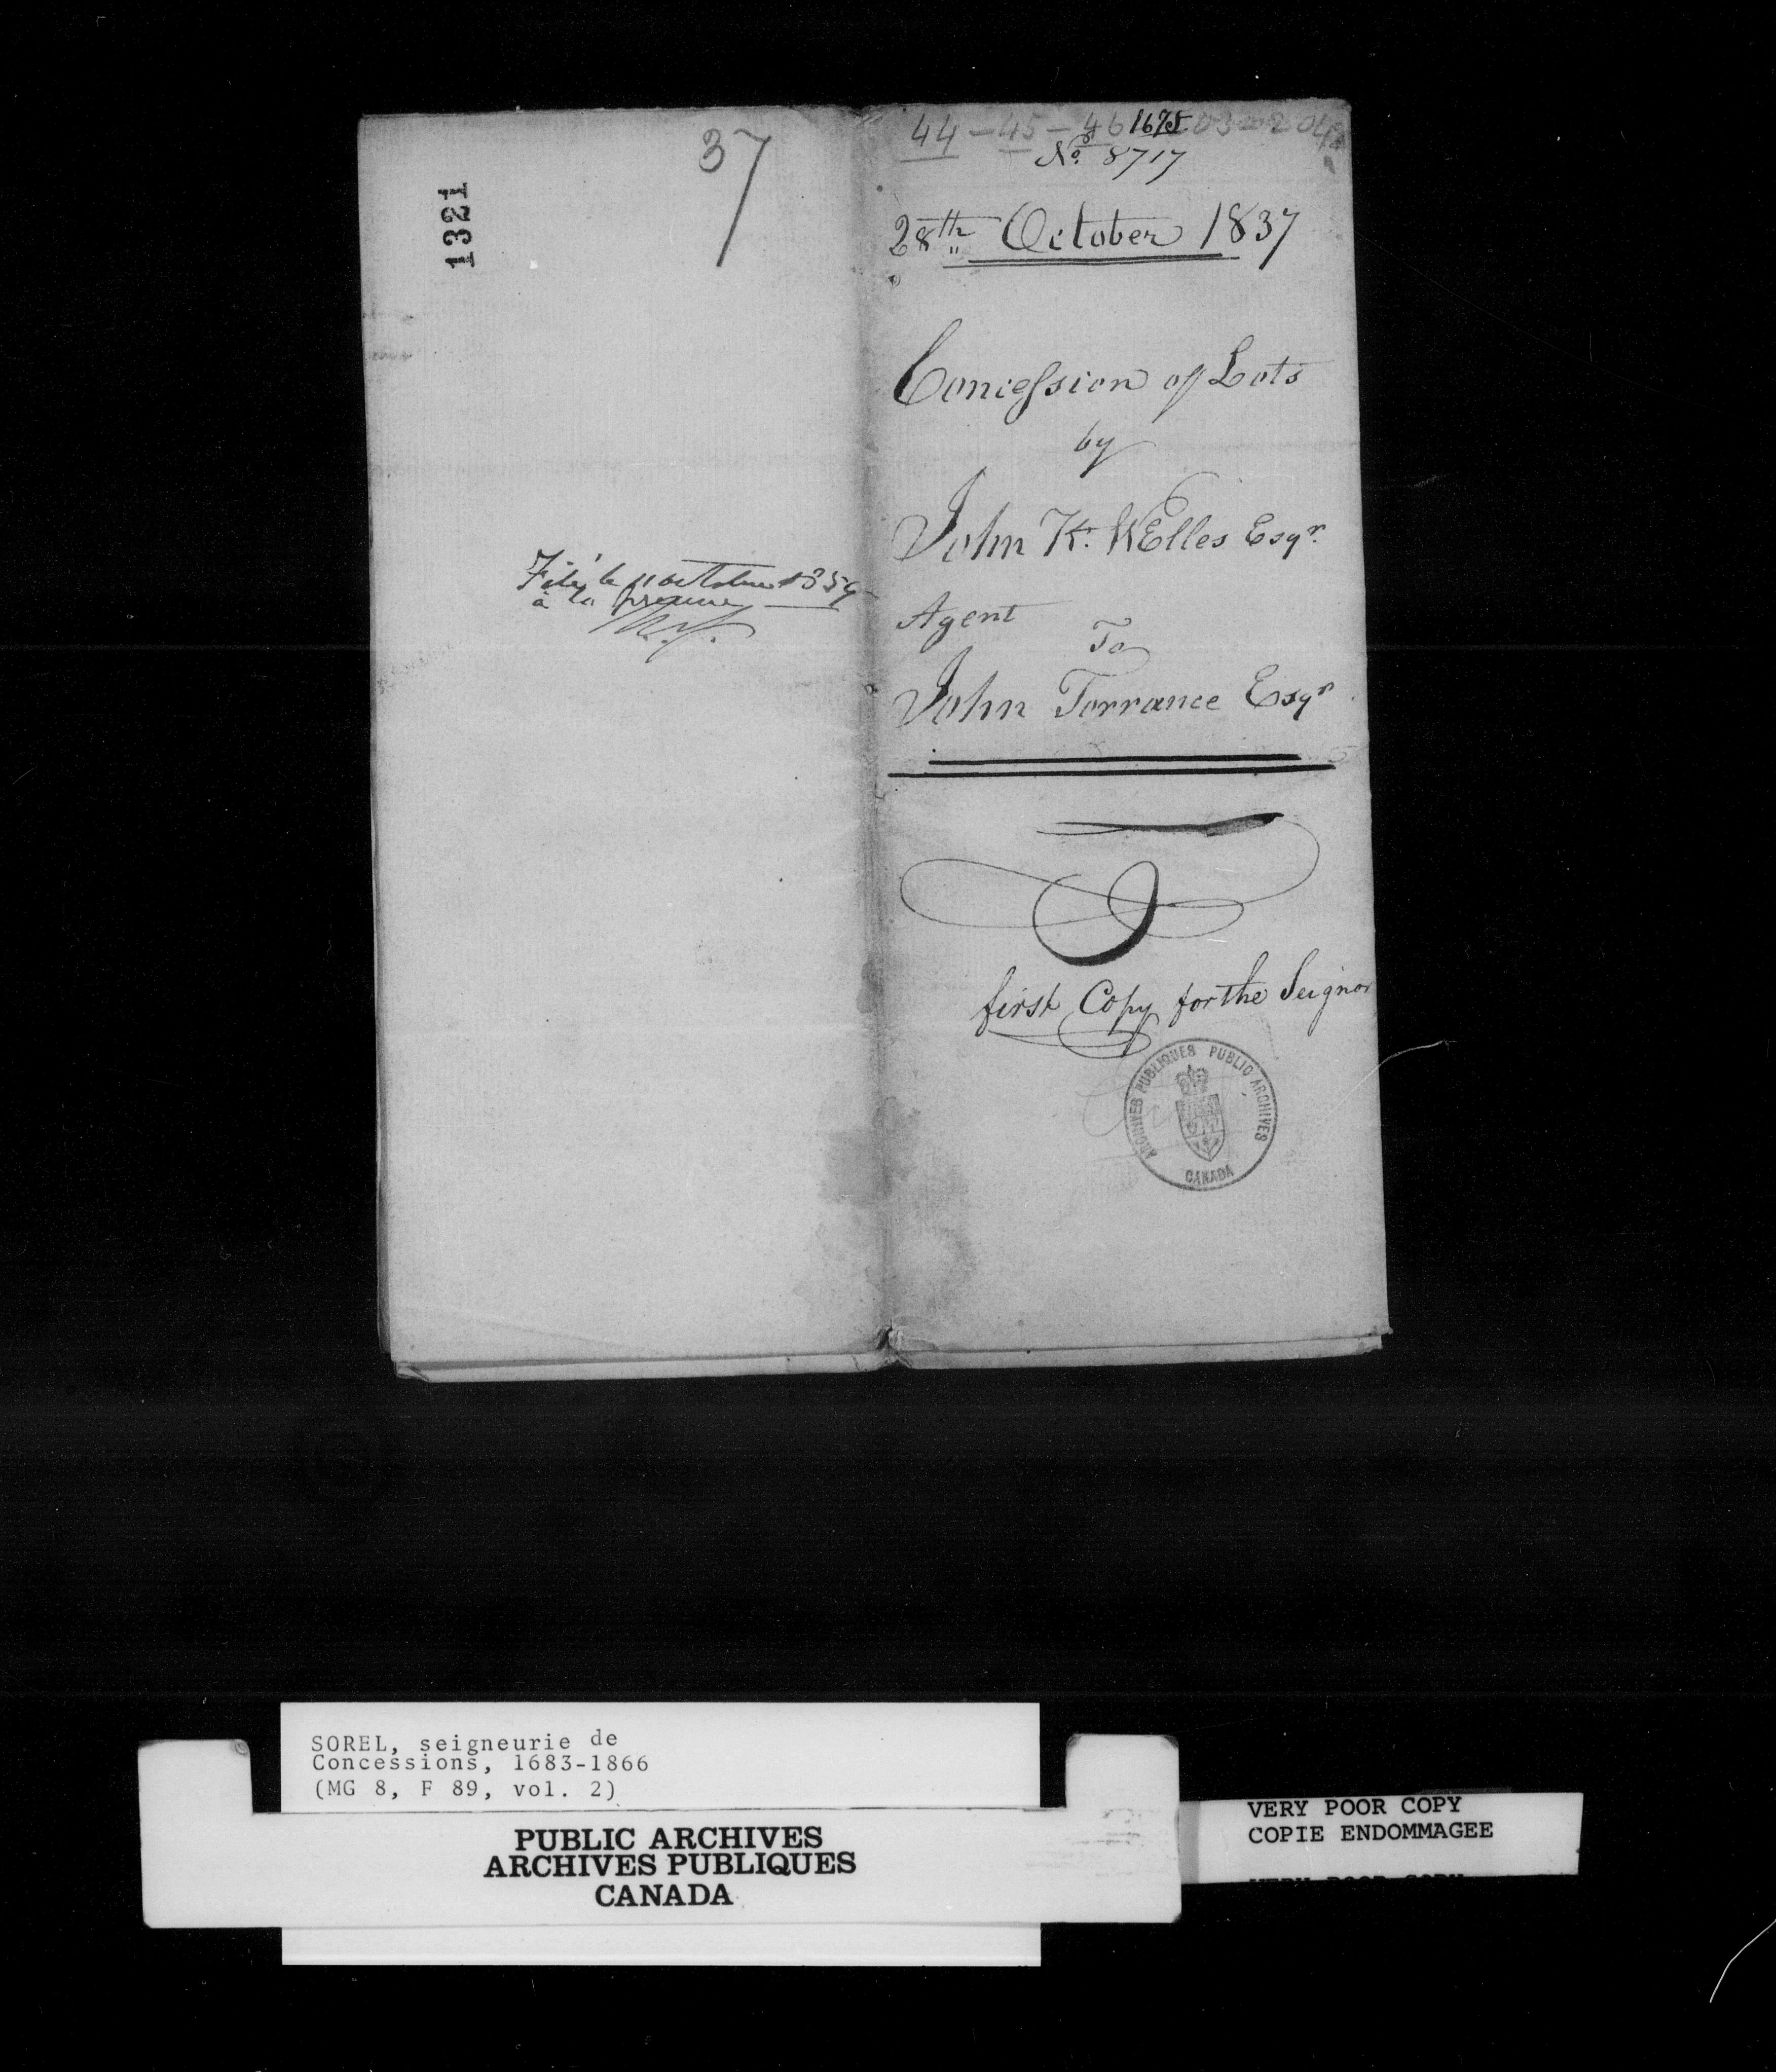 37
1321
Filé le 11 octobre 1859
à la
44 - 45 - 46 1675 203 - 204
No. 8717
28th October 1837
Concession of Lots
by
John K. WElles Esqr.
Agent
To
John Torrance Esqr
first Copy for the Seignor
ARCHIVES PUBLIQUES PUBLIC ARCHIVES
CANADA
SOREL, seigneurie de
Concessions, 1683-1866
(MG 8, F 89, vol. 2)
PUBLIC ARCHIVES
ARCHIVES PUBLIQUES
CANADA
VERY POOR COPY
COPIE ENDOMMAGEE
VERY POOR COPY